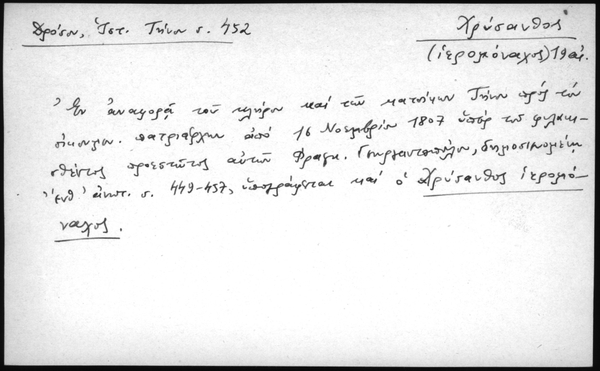 Δρόσου, Ἱστ. Τήνου σ. 452
Χρύσανθος
(ἱερομόναχος) 19 αἰ.
Ἐν ἀναφορᾷ τοῦ κλήρου καὶ τῶν κατοίκων Τήνου πρὸς τὸν
οἰκουμεν. πατριάρχην ἀπὸ 16 Νοεμβρίου 1807 ὑπὲρ τοῦ φυλακι-
σθέντος προεστῶτος αὐτῶν Φραγκ. Γεωργαντοπούλου, δημοσιευομένῃ
ἔνθ' ἀνωτ. σ. 449-457, ὑπογράφεται καὶ ὁ Χρύσανθος ἱερομό-
ναχος.